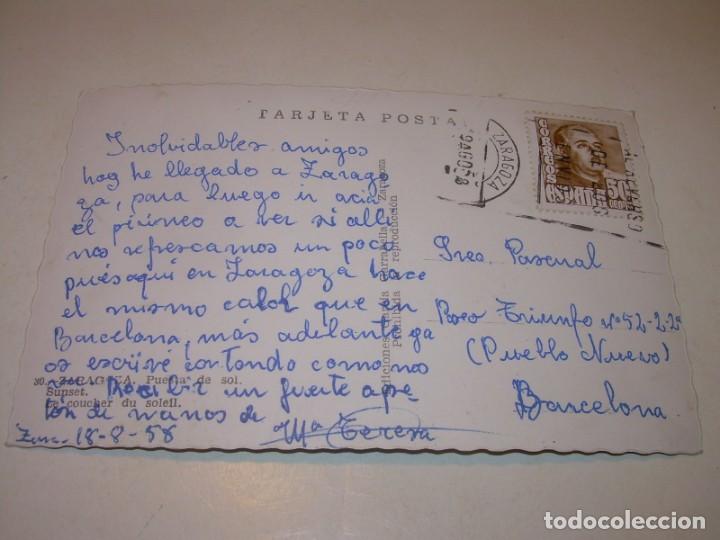 TARJETA POSTA
Inolvidables amigos
hoy he llegado a Zarago
za, para luego ir acia
el pirineo a ver si alli
nos refrescamos un poco
pués aqui en Zaragoza hace
el mismo calor que en
Barcelona, más adelante ya
os escrivé contando como nos
Recibir un fuerte apre
tón de manos de
Mª Teresa
Zara. 18-8-58
20.-ZARAGOZA. Puesta de sol.
Sunset.
Le coucher du soleil.
Ediciones García Garrabella - Zaragoza
Prohibida reproducción
ZARAGOZA
19AGO58
CORREOS
50
Sres. Pascual
Paseo Triunfo nº 52-2-2ª
(Pueblo Nuevo)
Barcelona
todocoleccion